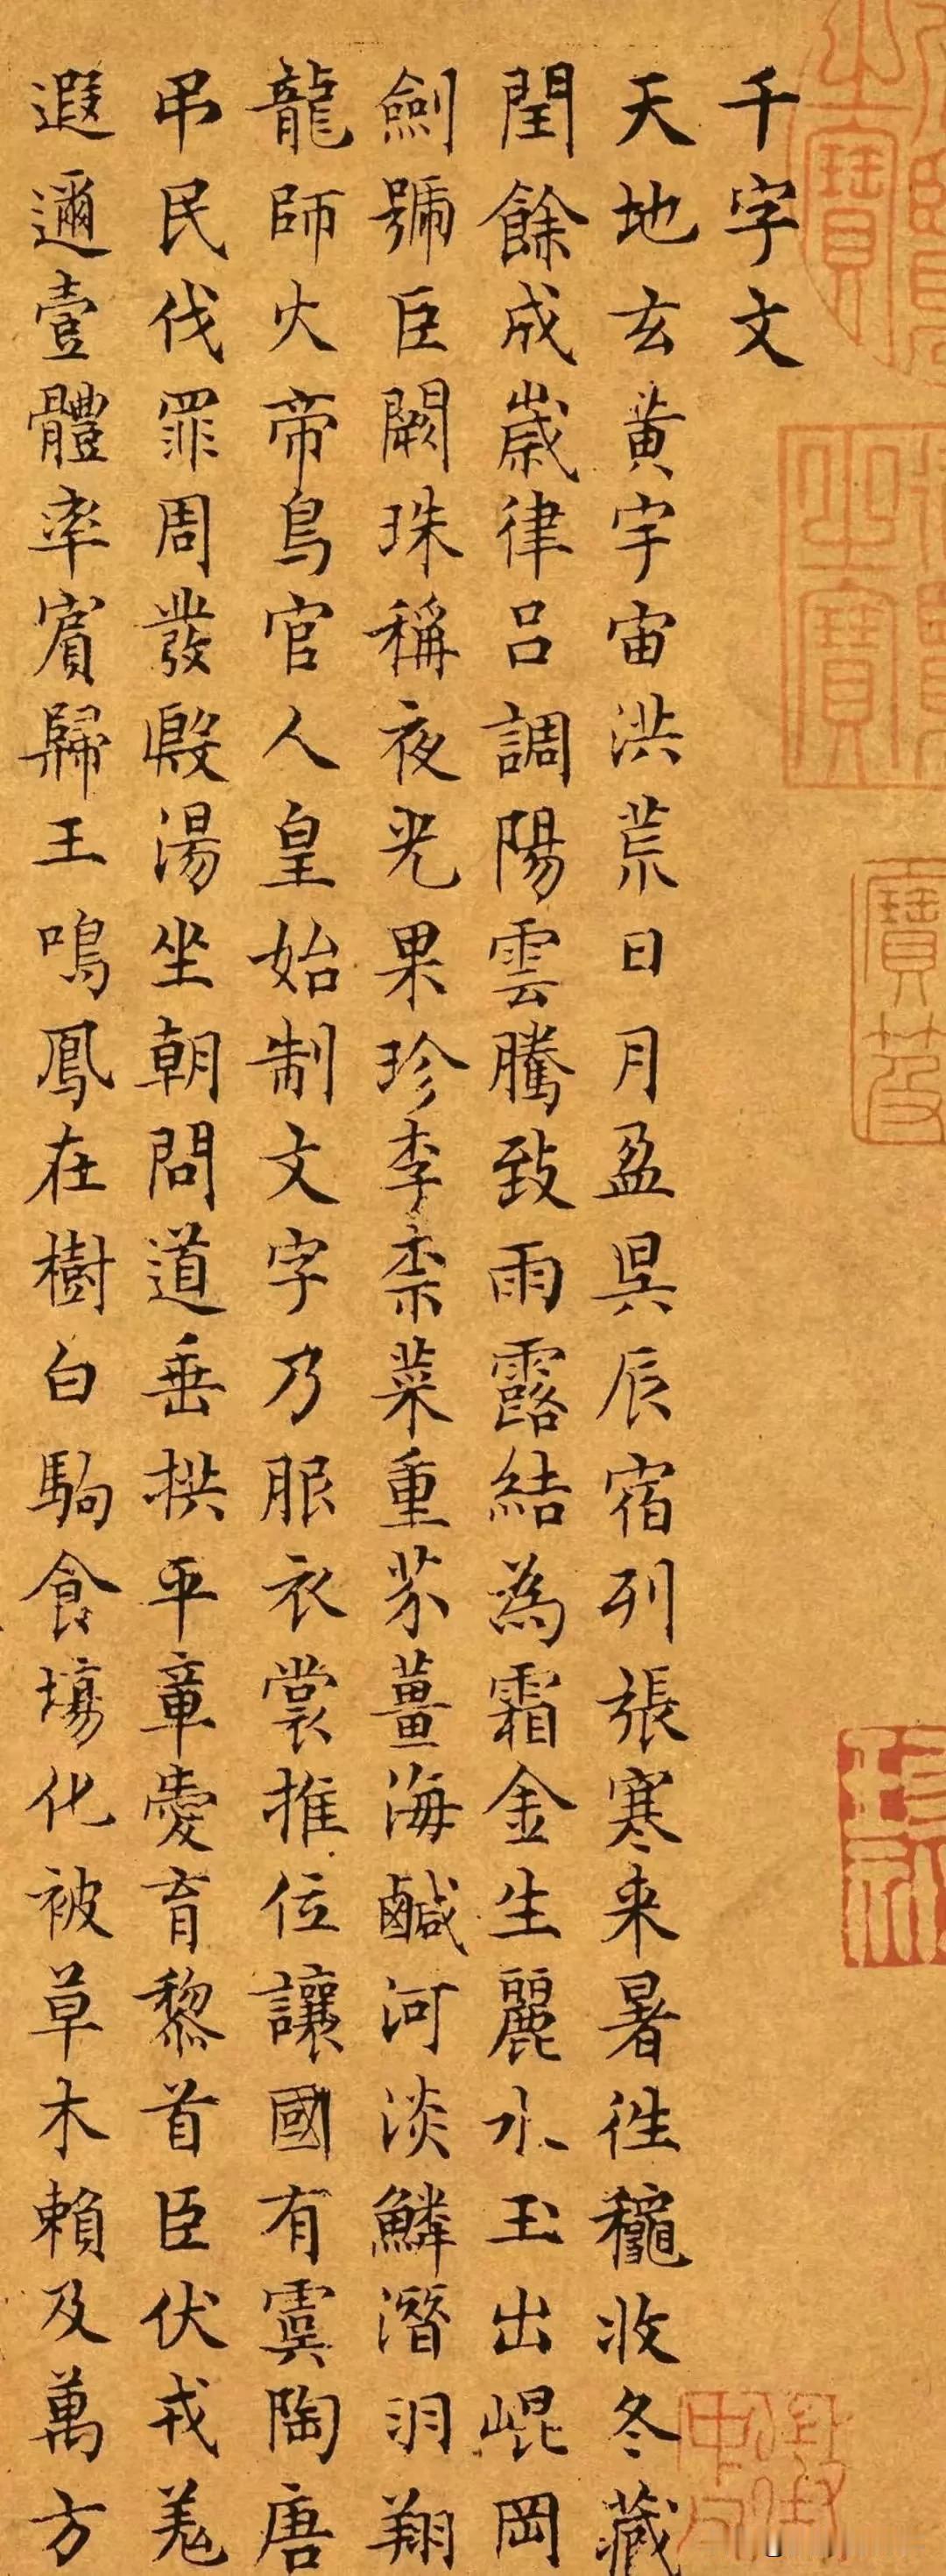 千字文
天地玄黃宇宙洪荒日月盈昃辰宿列張寒来暑徃龝收冬藏
閏餘成歲律呂調陽雲騰致雨露結為霜金生麗水玉出崐岡
劍號臣闕珠稱夜光果珍李柰菜重芥薑海鹹河淡鱗潛羽翔
龍師火帝鳥官人皇始制文字乃服衣裳推位讓國有虞陶唐
弔民伐罪周發殷湯坐朝問道垂拱平章愛育黎首臣伏戎羌
遐邇壹體率賓歸王鳴鳳在樹白駒食場化被草木賴及萬方